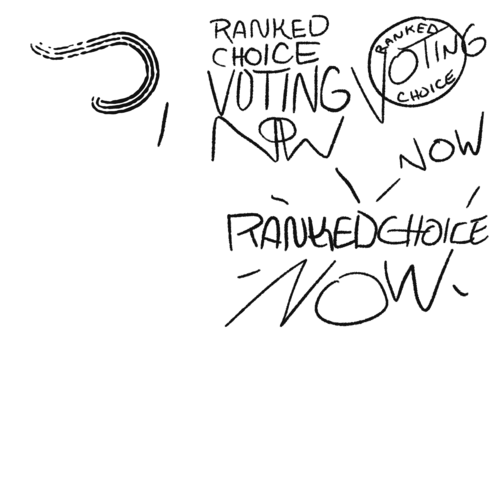 RANKED
CHOICE
VOTING
NOW
RANKED
VOTING
CHOICE
NOW
RANKED CHOICE
NOW.